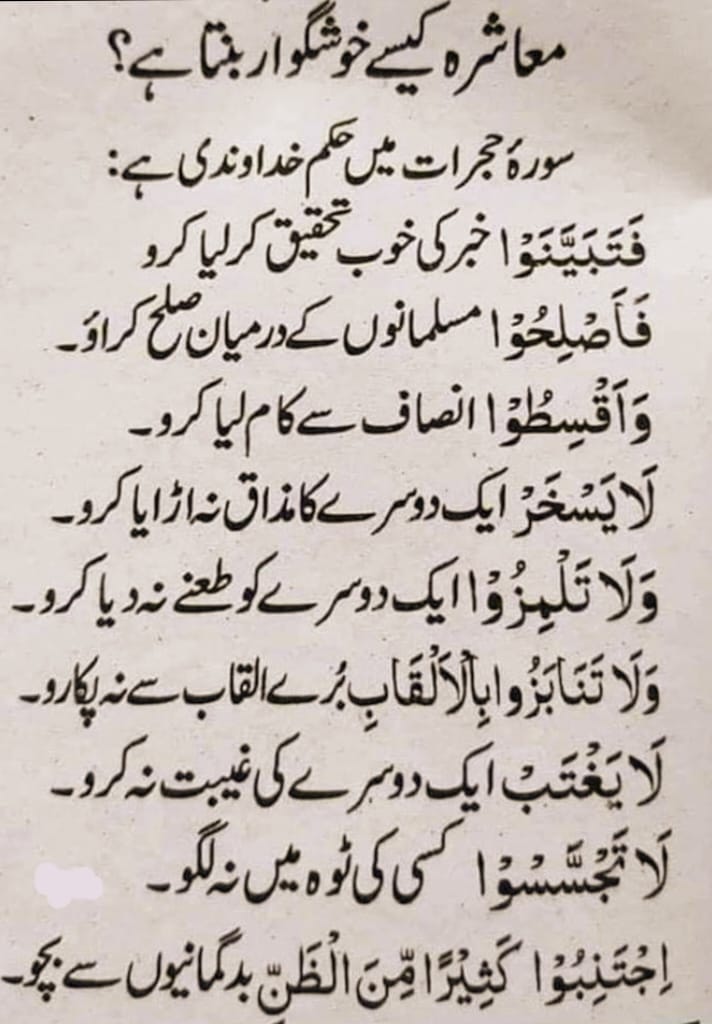 معاشرہ کیسے خوشگوار بنتا ہے؟
سورۂ حجرات میں حکم خداوندی ہے:
فَتَبَيَّنَوْا خبر کی خوب تحقیق کر لیا کرو
فَاَصْلِحُوْا مسلمانوں کے درمیان صلح کراؤ۔
وَاَقْسِطُوْا انصاف سے کام لیا کرو۔
لَا يَسْخَرْ ایک دوسرے کا مذاق نہ اڑایا کرو۔
وَلَا تَلْمِزُوْا ایک دوسرے کو طعنے نہ دیا کرو۔
وَلَا تَنَابَزُوا بِالْاَلْقَابِ بُرے القاب سے نہ پکارو۔
لَا يَغْتَبْ ایک دوسرے کی غیبت نہ کرو۔
لَا تَجَسَّسُوْا کسی کی ٹوہ میں نہ لگو۔
اِجْتَنِبُوْا كَثِيْرًا مِّنَ الْظَنِّ بدگمانیوں سے بچو۔